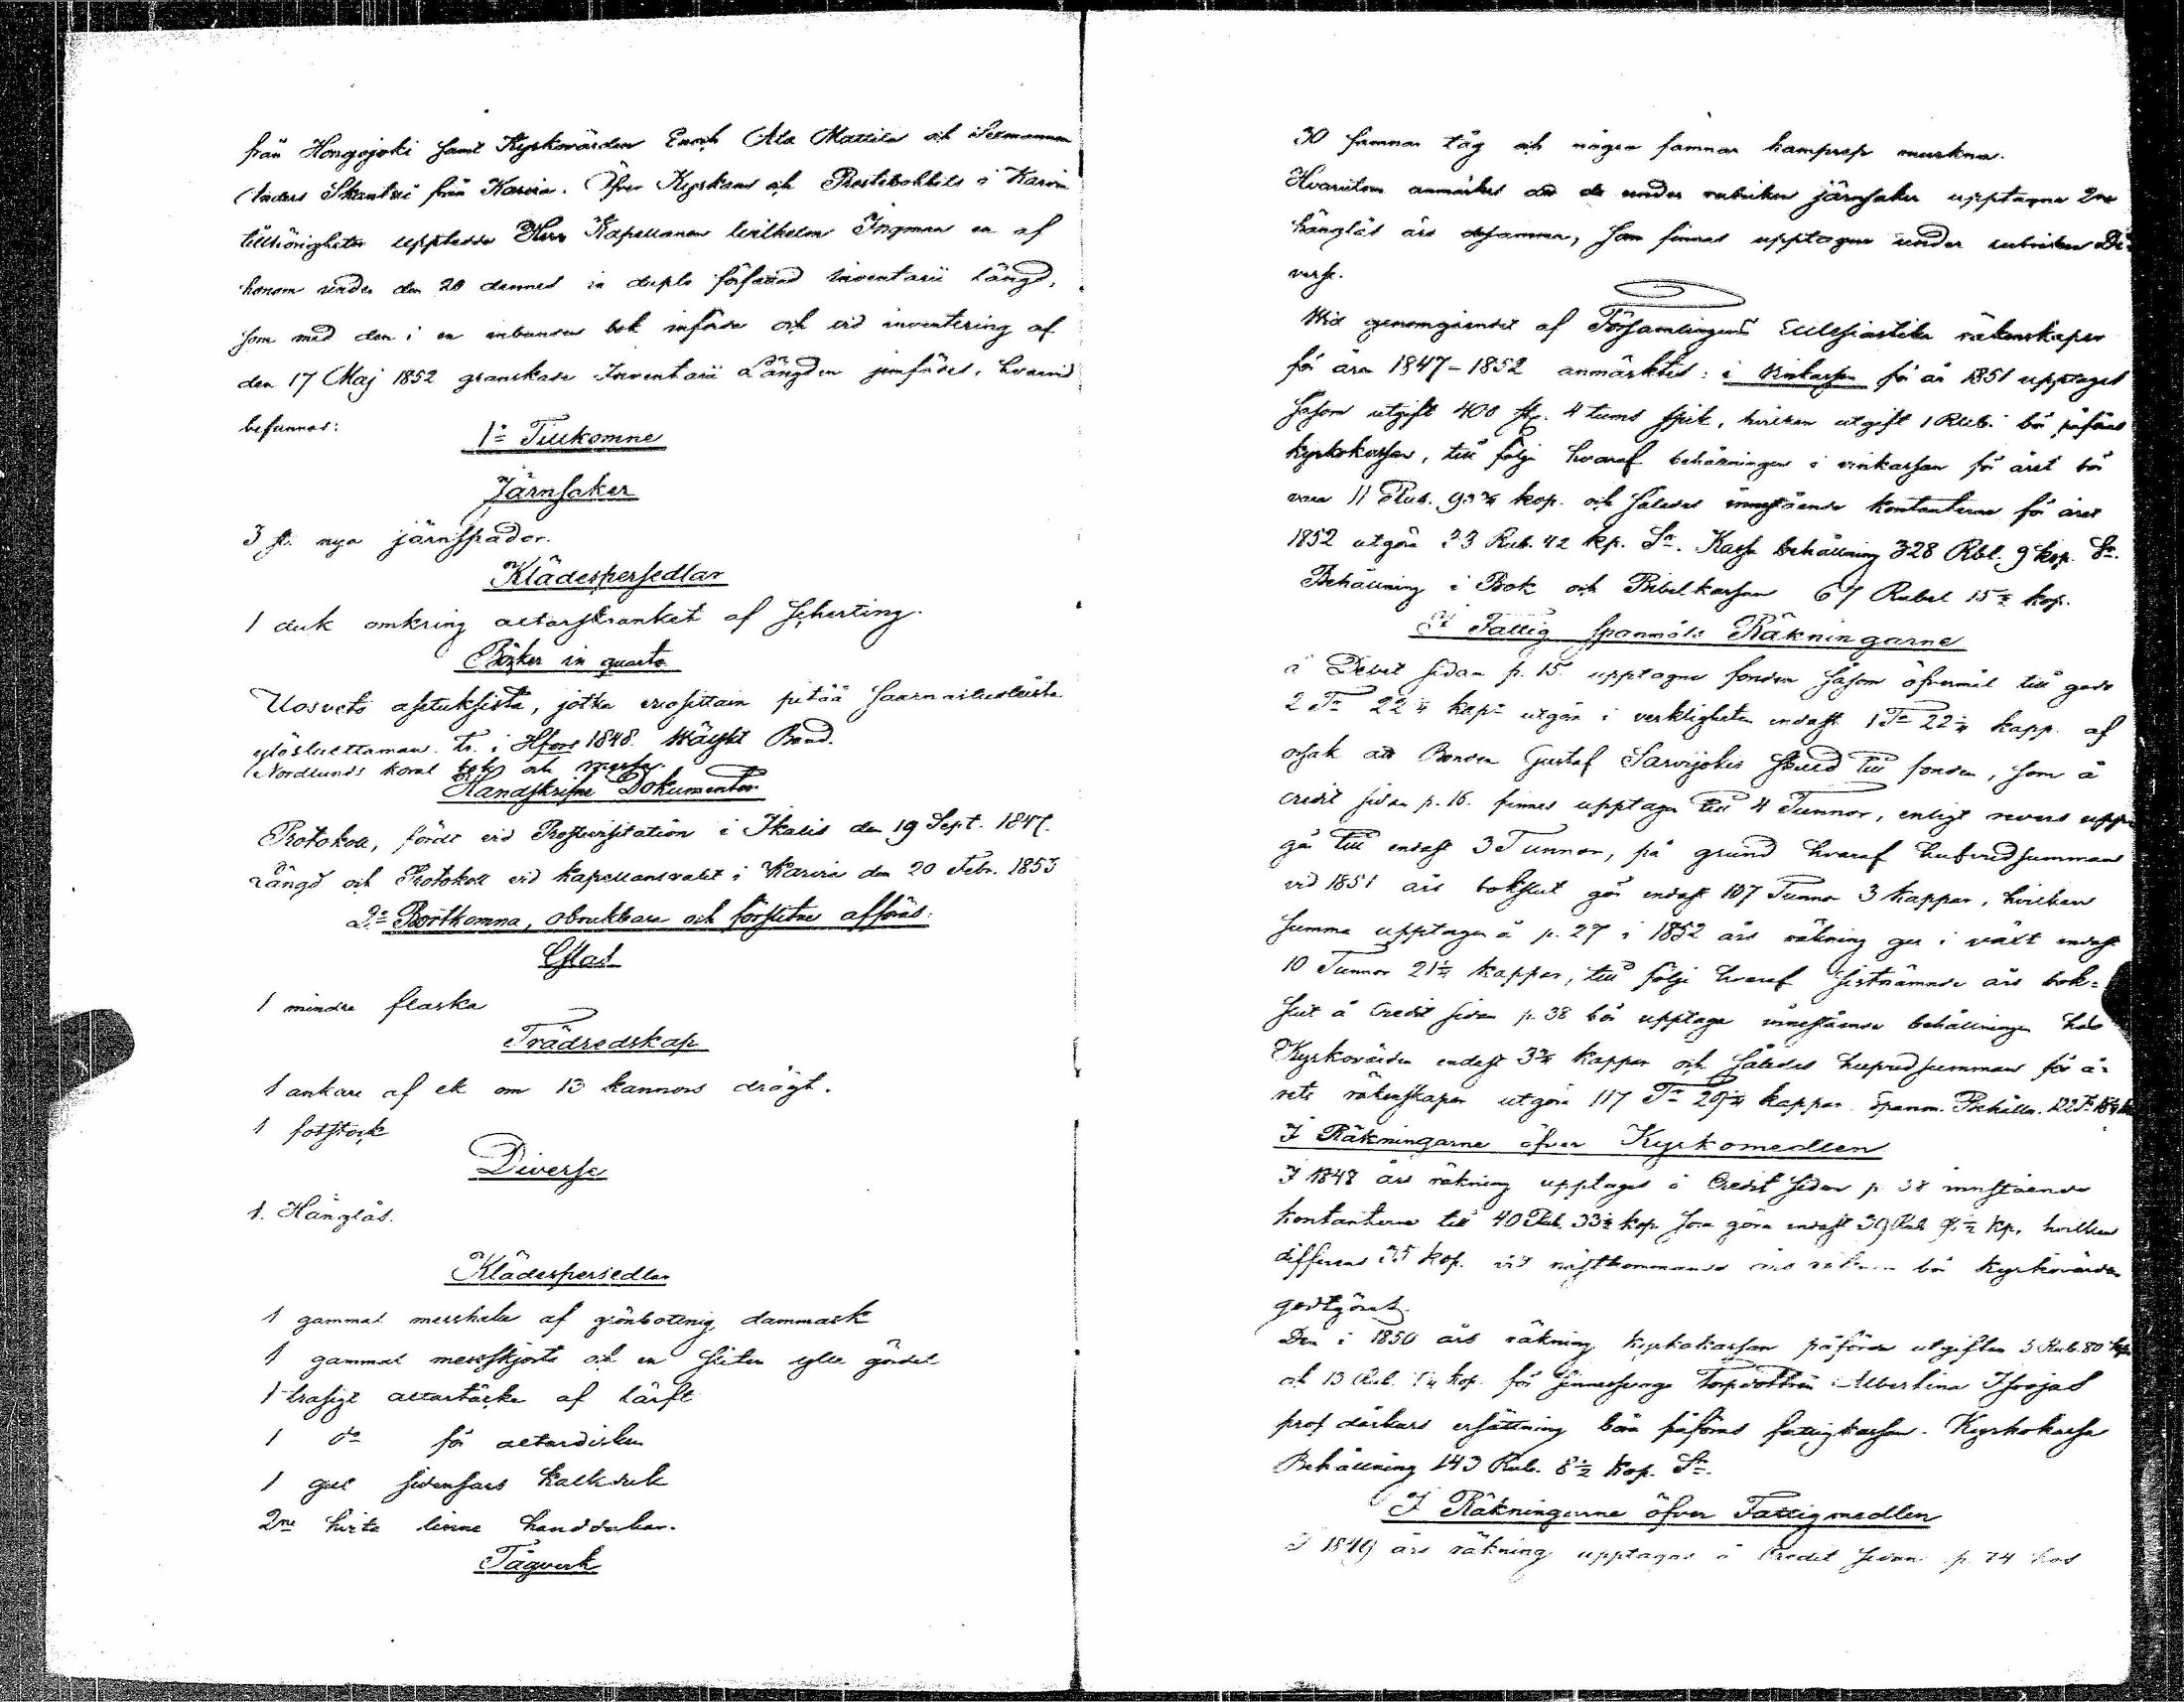 från Hongojoki samt Kyrkovärden Enoch Ala Mattila och
Anders Skantsi från Karvia. Öfver Kyrkans och Prestebohlets i Karvia
tillhörigheter upplästes Herr Kapellanen Wilhelm Ingman en af
honom under den 20 dennes in duplo författad Inventarii Längd,
som med den i en inbunden bok införda och vid inventering af
den 17 Maj 1852 granskade Inventarii Längden jemfördes, hvarvid
befunnos:
1:o Tillkomne
Järnsaker
3 st. nya järnspador.
Klädespersedlar
1 duk omkring altarskranket af scherting.
Böcker in quarto
Uosvets asetuksista, jotka pitää saarnastuolista
ylösluettaman. tr. i Hfors 1848. Häftet Band.
Nordlunds koral bok och messa
Handskrifne Dokumenter
Protokoll, fördt vid Prostvisitation i Ikalis den 19 Sept. 1847.
Längd och Protokoll vid kapellansvalet i Karvia den 20 Febr. 1853
2:o Bortkomna, obrukbara och förslitne afföras:
Glas
1 mindre flaska
Trädredskap
1 ankare af ek om 13 kannors drägt.
1 fotstock
Diverse
1. Hänglås.
Klädespersedlar
1 gammal messhake af grönbotnig dammask
1 gammal messkjorta och en sliten ylle gördel
1 trasigt altartäcke af lärft
1 do för altardisken
1 gul sidensars kalkduk
2ne hvita linne handdukar.
Tågverk
30 famnar tåg och några famnar hamprep murkna.
Hvarutom anmärktes att de under rubriken järnsaker upptagna 2ne
hänglås äro desamma, som finnas upptagne under rubriken Di-
verse.
Vid genomgåendet af Församlingens Ecclesiastika räkenskaper
för åren 1847-1852 anmärktes: i Vinkassan för år 1851 upptages
såsom utgift 400 st. 4 tums spik, hvilken utgift 1 Rub. bör påföras
kyrkokassan, till följe hvaraf behållningen i vinkassan för året bör
vara 11 Rub. 93 ¾ kop. och således innestående kontanterne för året
1852 utgöra 33 Rub. 42 kp. Sr. Kassa behållning 328 Rbl. 9 kop. Sr.
Behållning i Bok och Bibelkassan 67 Rubel 15 ½ kop.
I Fattig Spanmåls Räkningarne
å Debet sidan p. 15. upptagne fonden såsom öfvermål till godo
2 Tr 22 ¼ kapr utgör i verkligheten endast 1 Tr 22 ¼ kapp. af
orsak att Bonden Gustaf Sarvijokis skuld till fonden, som å
credit sidan p. 16. finnes upptagen till 4 Tunnor, enligt revers upp-
går till endast 3 Tunnor, på grund hvaraf hufvudsumman
vid 1851 års bokslut gör endast 107 Tunnor 3 kappar, hvilken
summa upptagen å p. 27 i 1852 års räkning ger i växt endast
10 Tunnor 21 ¼ kappar, till följe hvaraf sistnämnde års bok-
slut å Credit sidan p. 38 bör upptaga innestående behållningen hos
Kyrkovärden endast 3 ¾ kappar och således hufvudsumman för å-
rets räkenskaper utgöra 117 Tr 29 ¼ kappar. Spanm. Behålln.
I Räkningarne öfver Kyrkomedlen
I 1848 års räkning upptages å Credit sidan p. 38 innestående
kontanterne till 40 Rub. 33 ½ kop. som göra endast 39 Rub. kp, hvilken
differens 35 kop. vid nästkommande års räkning bör kyrkovärden
godtgöras.
Den i 1850 års räkning kyrkokassan påförde utgiften 5 Rub. 80 kop
och 13 Rub. kop. för sinnessvaga Torpdottren Albertina
på dårhus ersättning böra påföras fattigkassan. Kyrkokassa
Behållning 143 Rub. 8 ½ kop. Sr.
I Räkningarne öfver Fattigmedlen
I 1849 års räkning upptages å Credit sidan p. 74 hos